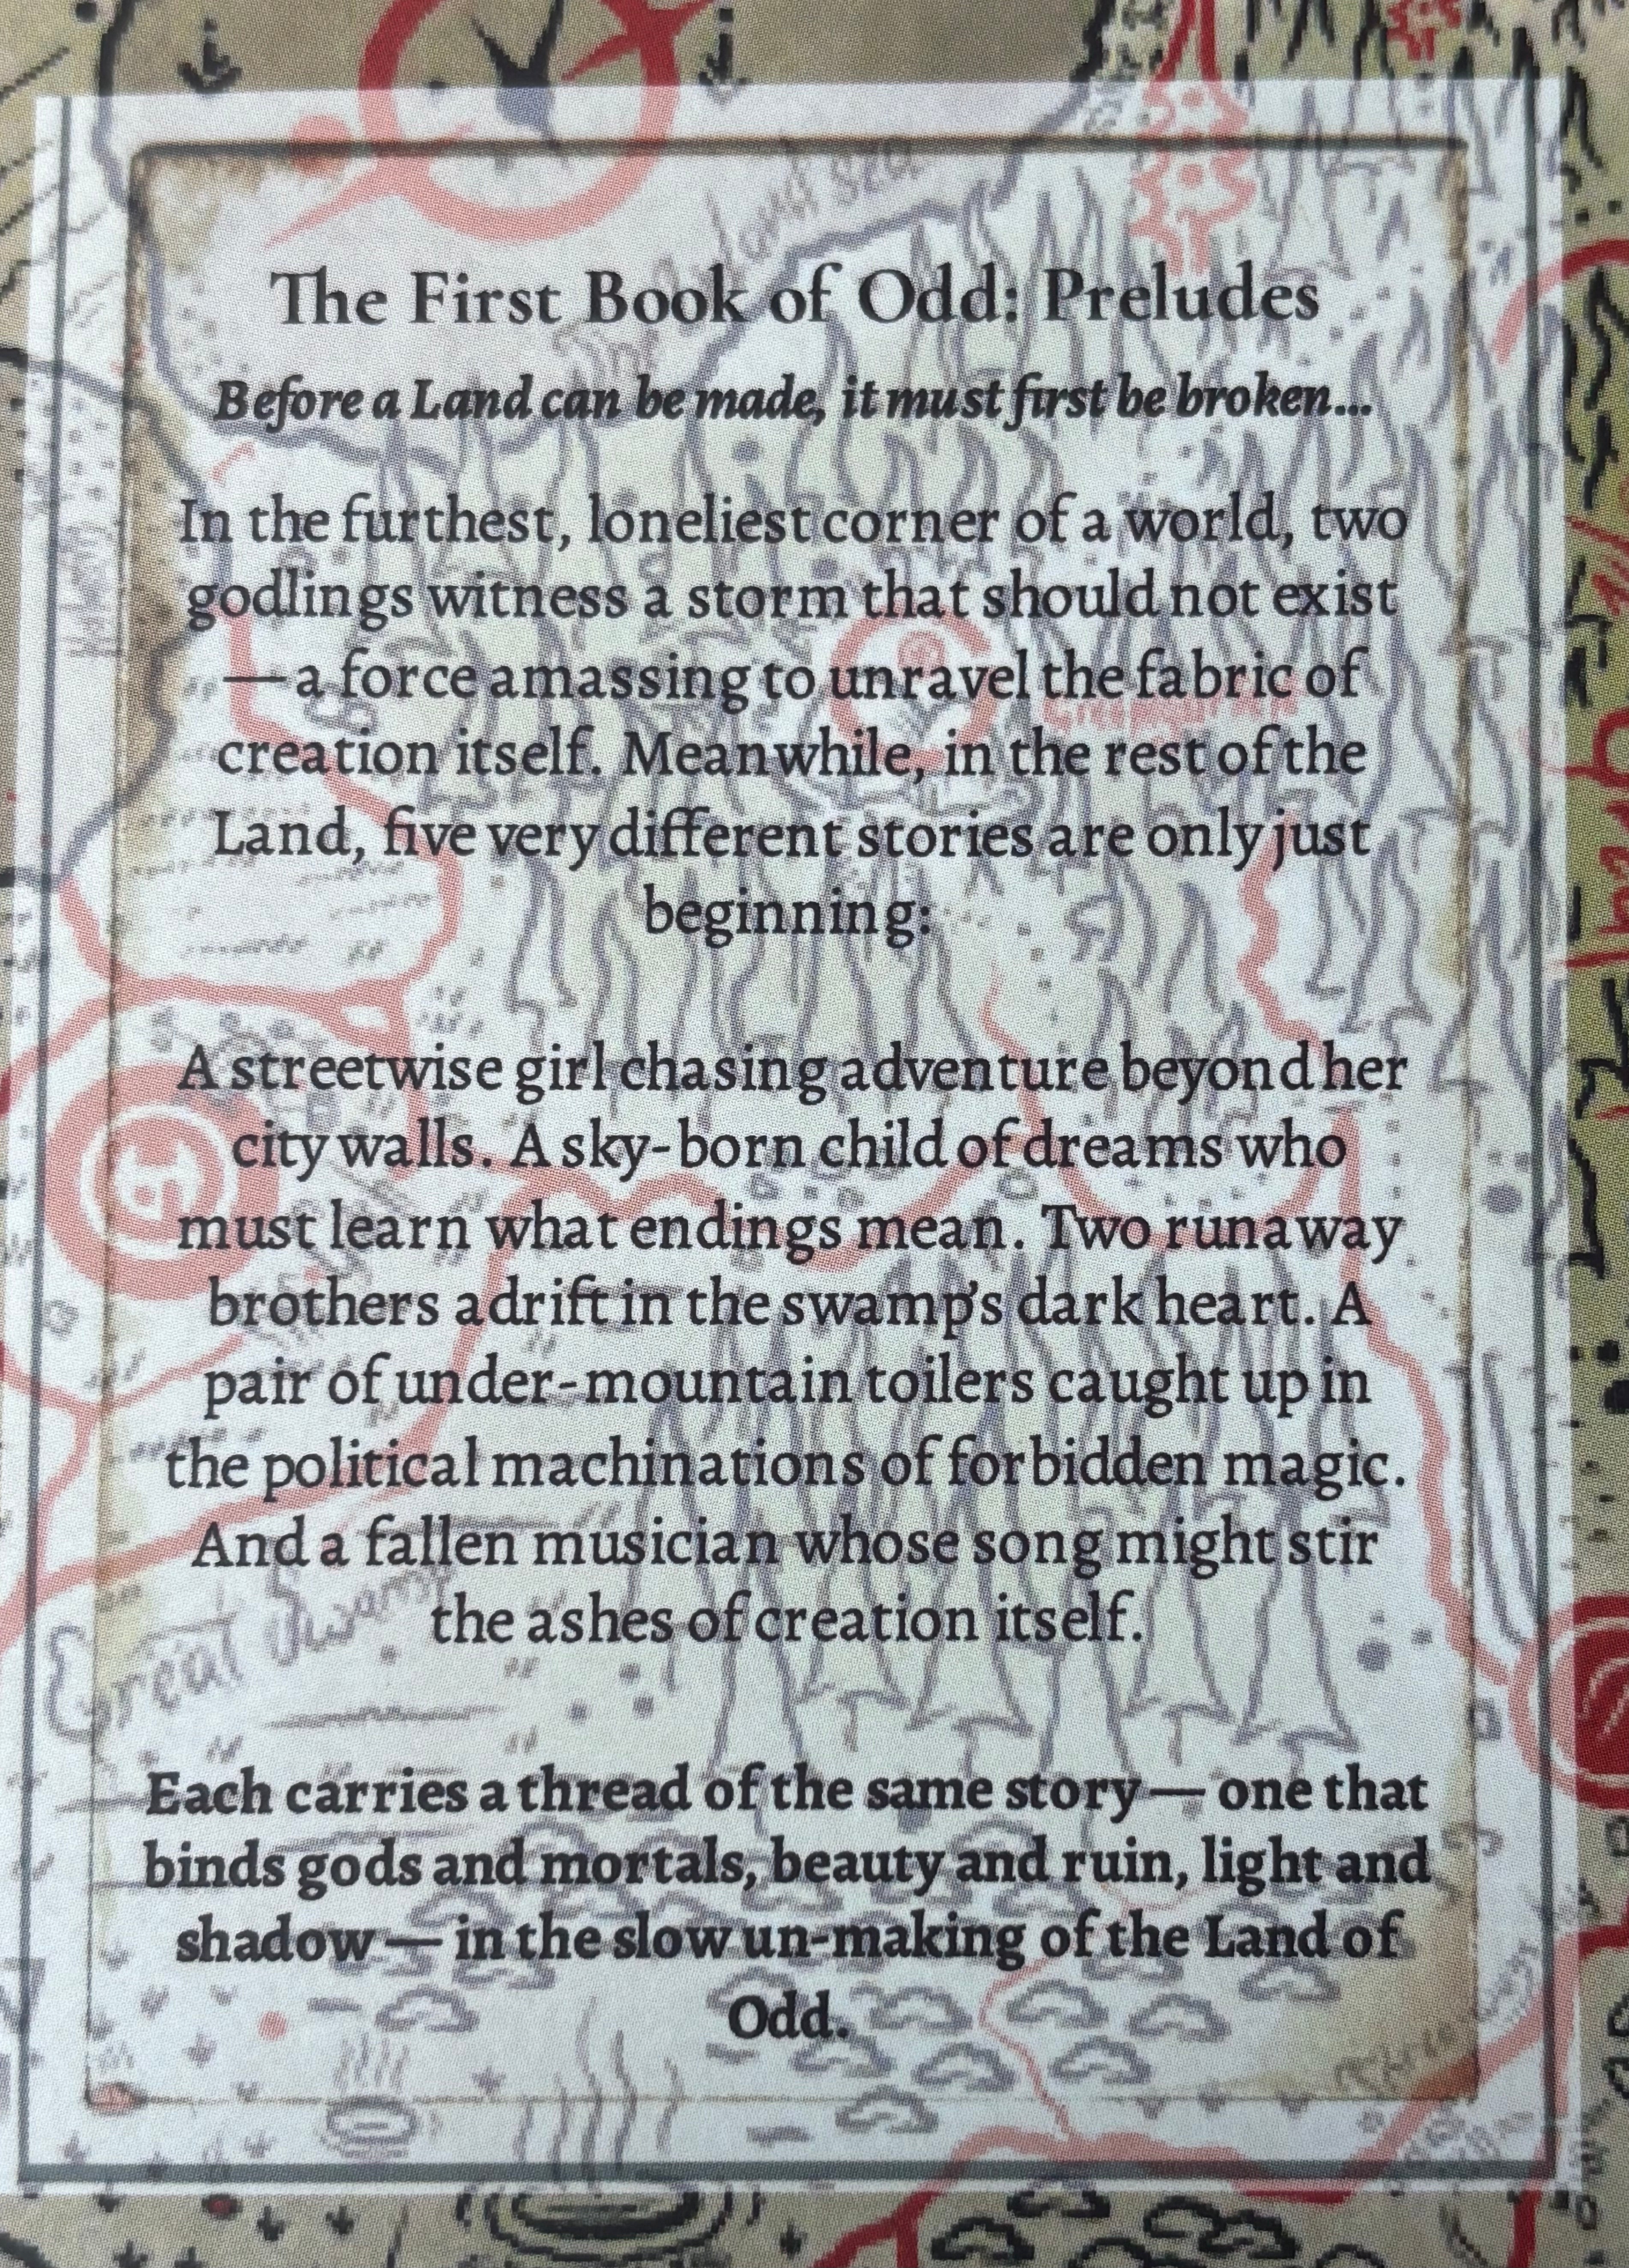 The First Book of Odd: Preludes
Before a Land can be made, it must first be broken...
In the furthest, loneliest corner of a world, two
godlings witness a storm that should not exist
— a force amassing to unravel the fabric of
creation itself. Meanwhile, in the rest of the
Land, five very different stories are only just
beginning:
A streetwise girl chasing adventure beyond her
city walls. A sky-born child of dreams who
must learn what endings mean. Two runaway
brothers adrift in the swamp's dark heart. A
pair of under-mountain toilers caught up in
the political machinations of forbidden magic.
And a fallen musician whose song might stir
the ashes of creation itself.
Great Swamp
Each carries a thread of the same story — one that
binds gods and mortals, beauty and ruin, light and
shadow — in the slow un-making of the Land of
Odd.